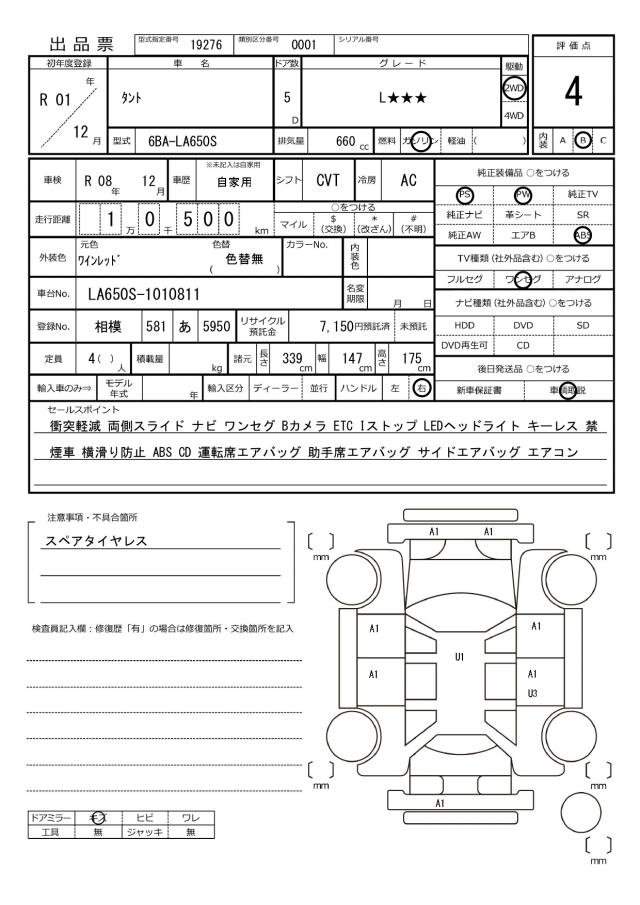 出品票 型式指定番号 19276 類別区分番号 0001 シリアル番号
初年度登録 車名 ドア数 グレード 駆動 評価点
R 01 年 12 月 タント 5 D L★★★ 2WD 4WD 4
型式 6BA-LA650S 排気量 660 cc 燃料 ガソリン 軽油 ( ) 内装 A B C
車検 R 08 年 12 月 車歴 ※未記入は自家用 自家用 シフト CVT 冷房 AC
純正装備品 ○をつける
PS PW 純正TV
純正ナビ 革シート SR
純正AW エアB ABS
走行距離 1 万 0 千 5 0 0 km ○をつける
マイル $ (交換) * (改ざん) # (不明)
外装色 元色 ワインレッド 色替 ( 色替無 ) カラーNo. 内装色
TV種類 (社外品含む) ○をつける
フルセグ ワンセグ アナログ
車台No. LA650S-1010811 名変期限 月 日
ナビ種類 (社外品含む) ○をつける
HDD DVD SD
DVD再生可 CD
登録No. 相模 581 あ 5950 リサイクル預託金 7,150円預託済 未預託
定員 4 ( ) 人 積載量 kg 諸元 長さ 339 cm 幅 147 cm 高さ 175 cm
後日発送品 ○をつける
新車保証書 車輌取説
輸入車のみ⇒ モデル年式 年 輸入区分 ディーラー 並行 ハンドル 左 右
セールスポイント
衝突軽減 両側スライド ナビ ワンセグ Bカメラ ETC Iストップ LEDヘッドライト キーレス 禁
煙車 横滑り防止 ABS CD 運転席エアバッグ 助手席エアバッグ サイドエアバッグ エアコン
注意事項・不具合箇所
スペアタイヤレス
検査員記入欄：修復歴「有」の場合は修復箇所・交換箇所を記入
A1 A1
[ ] mm [ ] mm
A1 A1
U1
A1 A1
U3
[ ] mm [ ] mm
A1
[ ] mm
ドアミラー キズ ヒビ ワレ
工具 無 ジャッキ 無